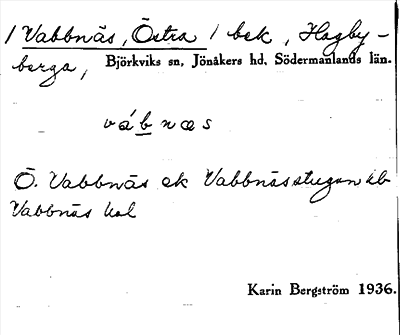 / Vabbnäs, Östra / bek, Hagby-
berga, Björkviks sn, Jönåkers hd, Södermanlands län.
vábnæs
Ö. Vabbnäs ek Vabbnässtugan lb
Vabbnäs kol
Karin Bergström 1936.